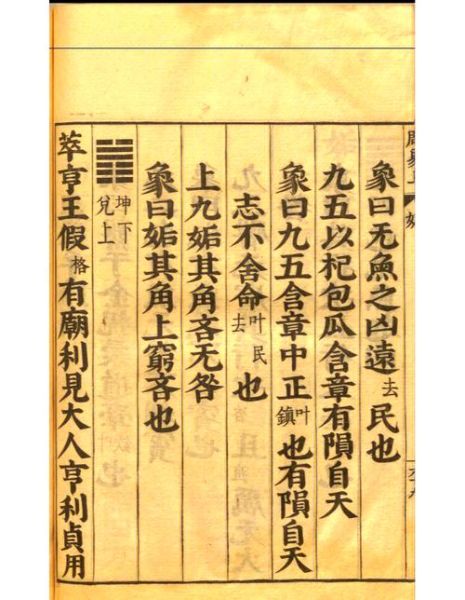 象曰无魚之凶遠去民也
九五以杞包瓜含章有隕自天
象曰九五含章中正叶鎮也有隕自天
志不舍命去叶民也
上九姤其角吝无咎
象曰姤其角上窮吝也
坤下
兌上
萃亨王假格有廟利見大人亨利貞用